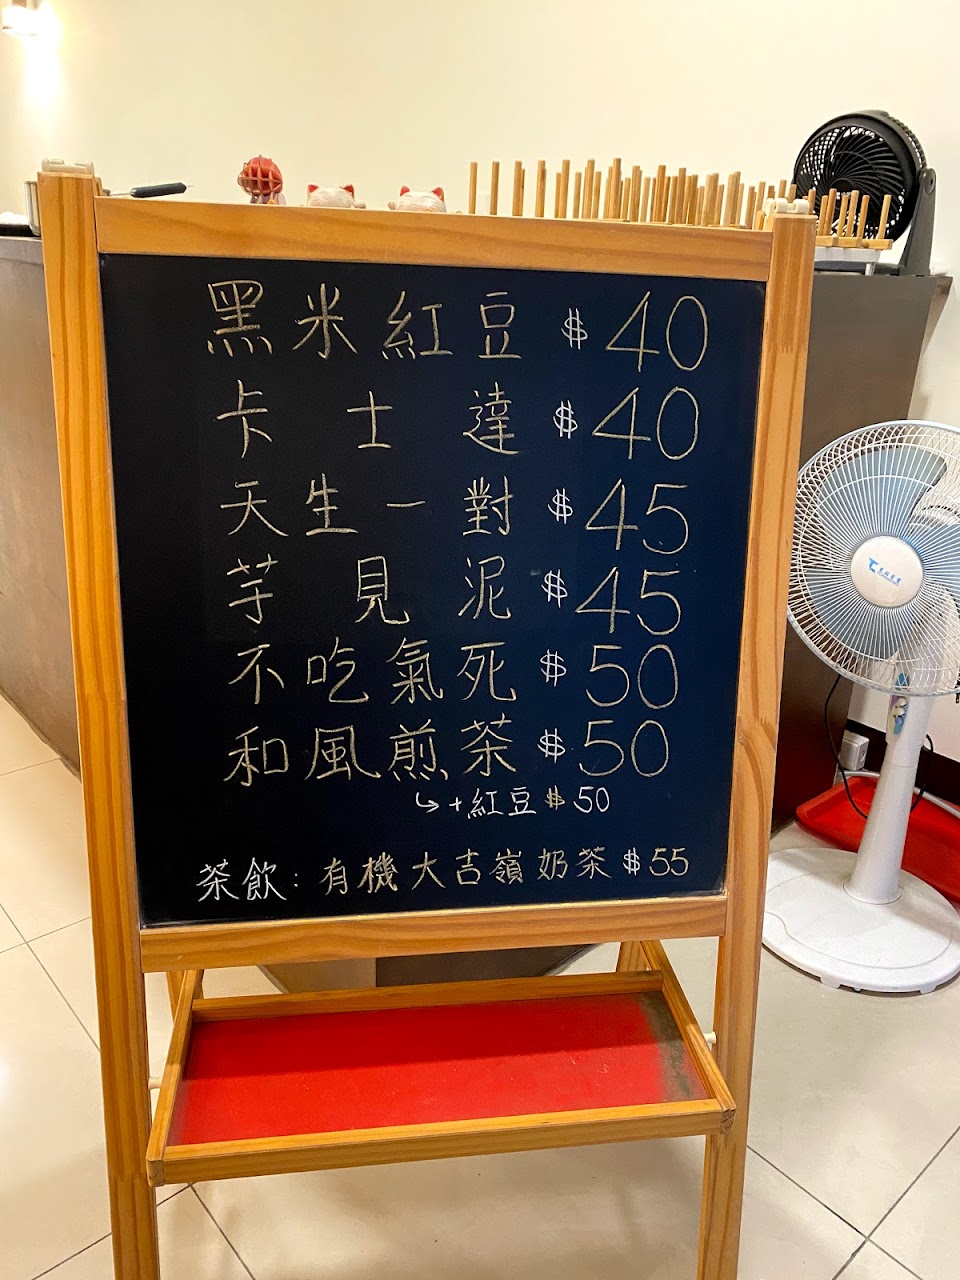 黑米紅豆 $40
卡士達 $40
天生一對 $45
芋見泥 $45
不吃氣死 $50
和風煎茶 $50
↪+紅豆 $50
茶飲:有機大吉嶺奶茶 $55